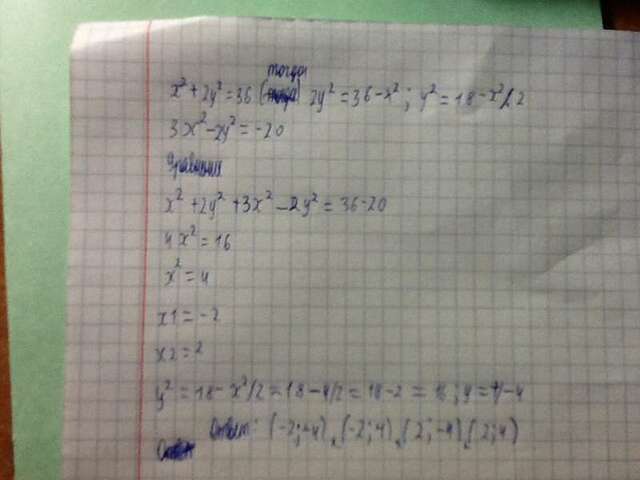 x² + 2y² = 36 (тогда) 2y² = 36 - x² ; y² = 18 - x²/2
3x² - 2y² = -20
x² + 2y² + 3x² - 2y² = 36 - 20
4x² = 16
x² = 4
x1 = -2
x2 = 2
y² = 18 - x²/2 = 18 - 4/2 = 18 - 2 = 16 ; y = +/-4
Ответ: (-2; -4), (-2; 4), (2; -4), (2; 4)